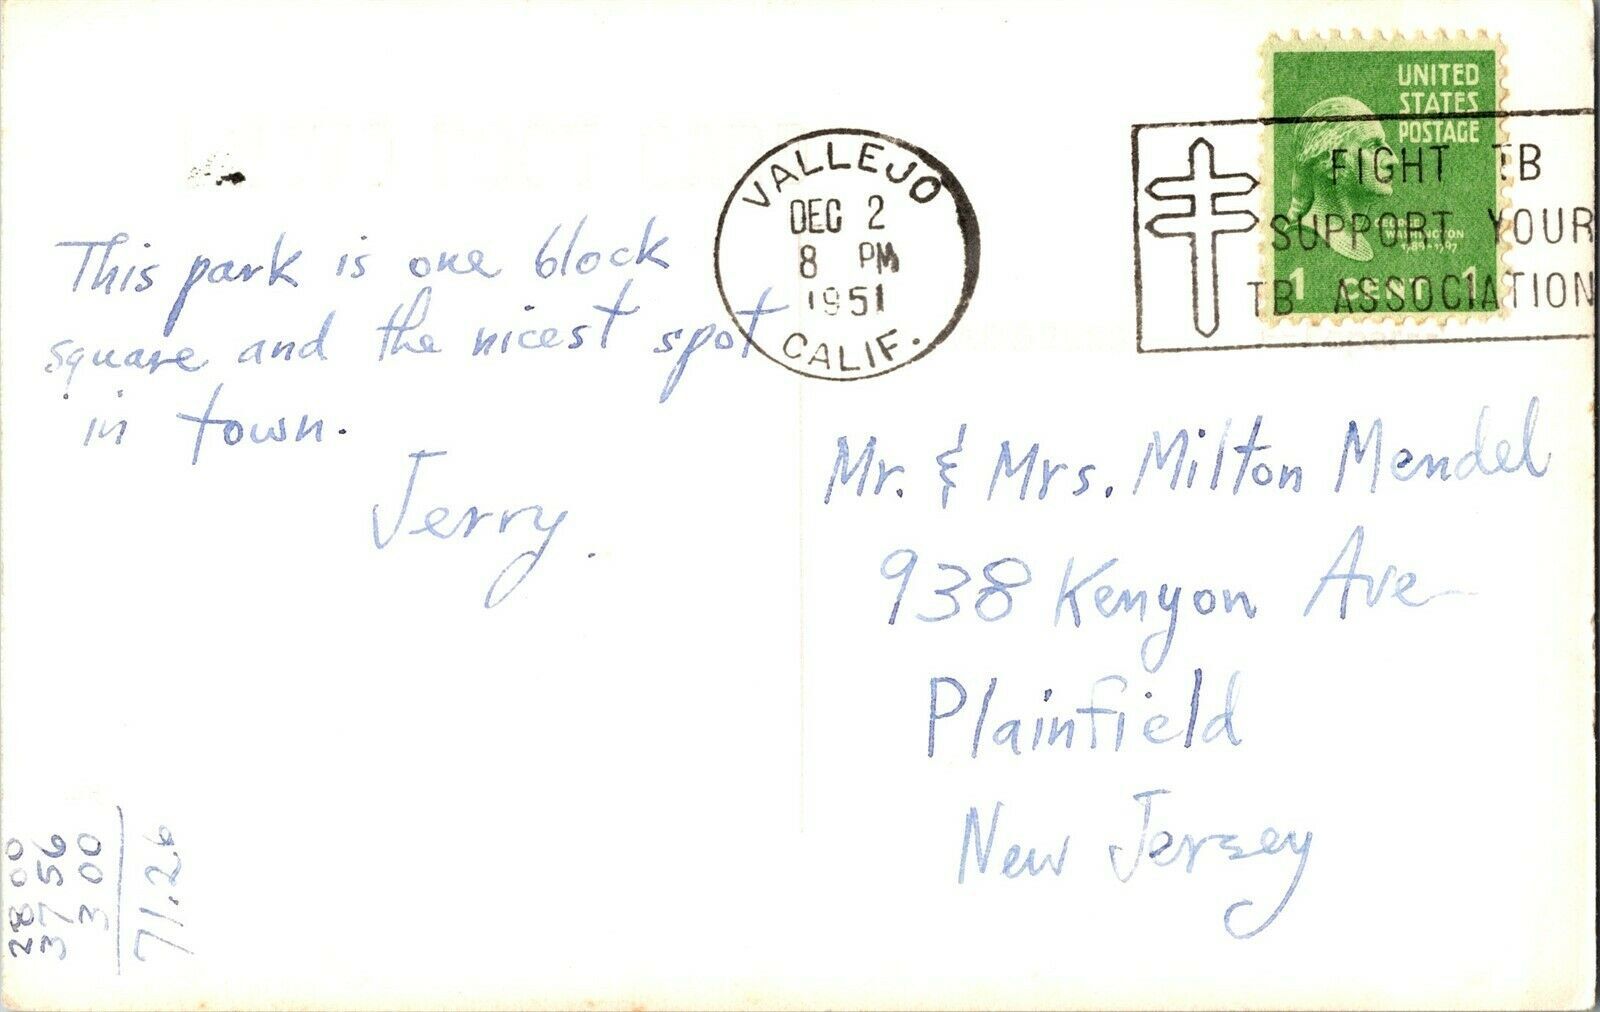 This park is one block
square and the nicest spot
in town.
Jerry.
VALLEJO
DEC 2
8 PM
1951
CALIF.
UNITED
STATES
POSTAGE
GEORGE
WASHINGTON
1789-1797
1 CENT 1
FIGHT TB
SUPPORT YOUR
TB ASSOCIATION
Mr. & Mrs. Milton Mendel
938 Kenyon Ave
Plainfield
New Jersey
28 00
37 56
3 00
71.26